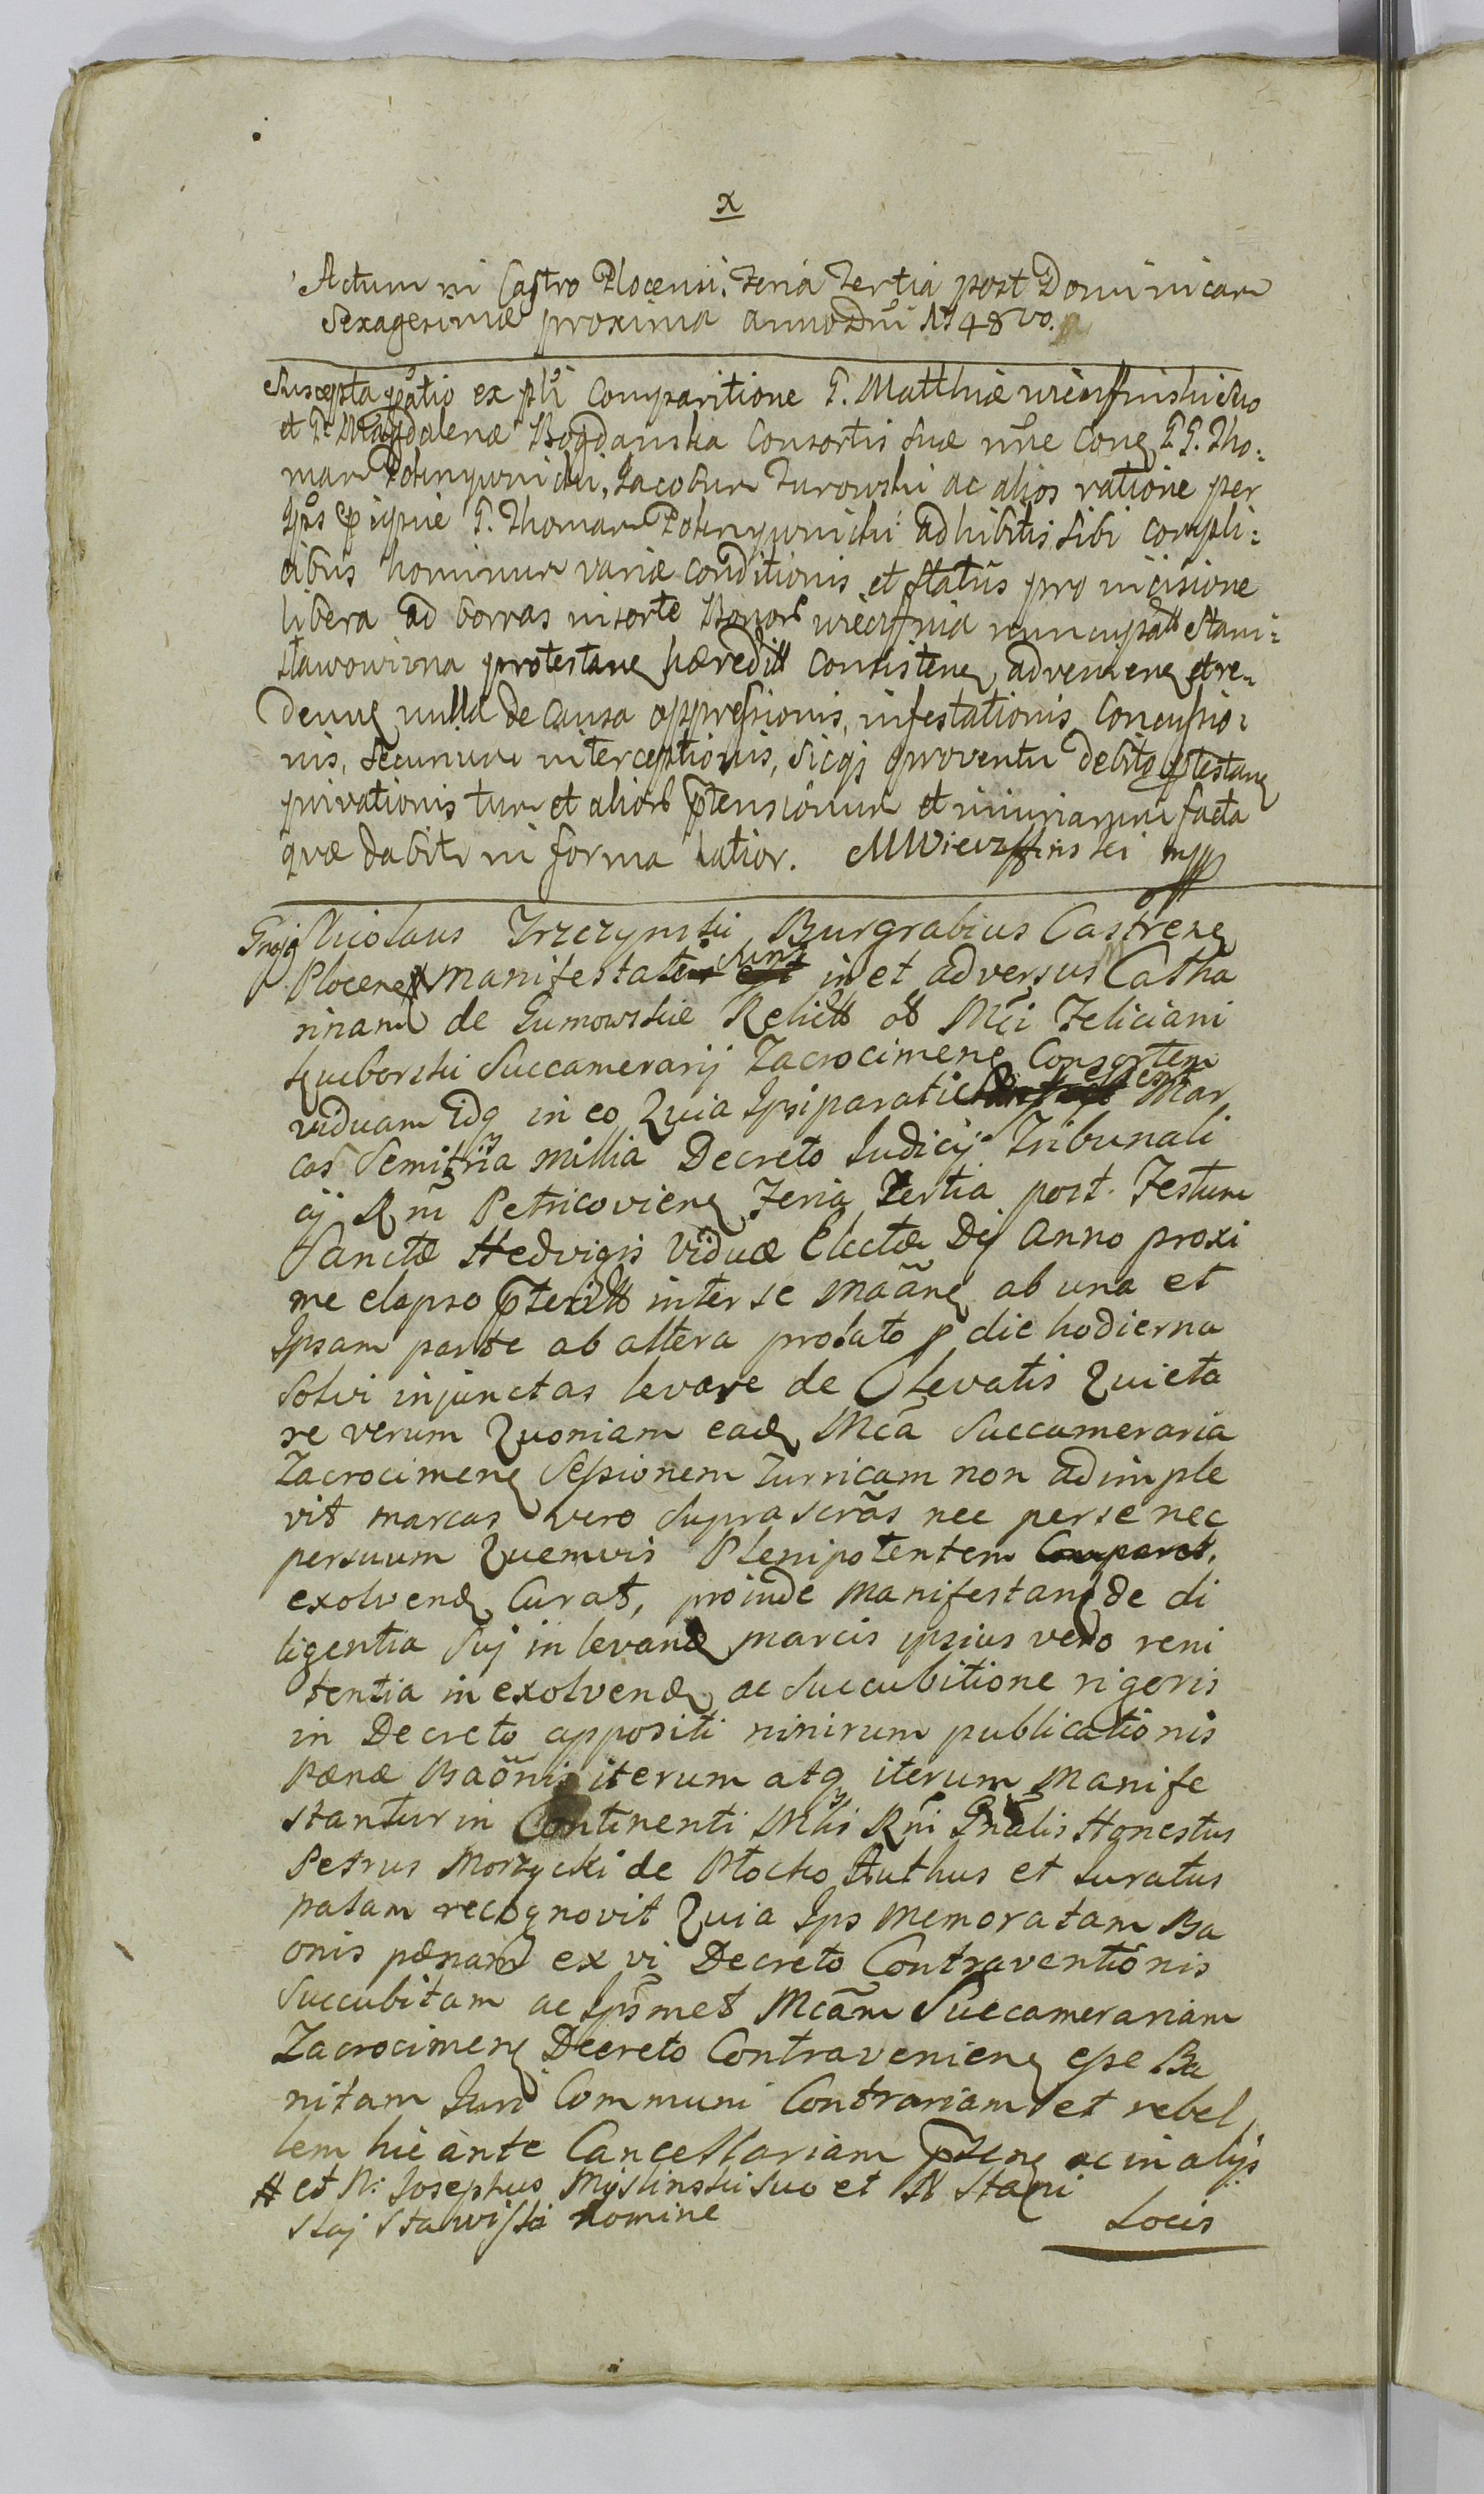 x
Actum in Castro Plocensi, Feria Tertia post Dominicam
Sexagesimæ proxima anno Dni 1748vo.
Suscepta ptātio ex pli Comparitione G. Matthiæ Wierzffinski Suo
et G. Magdalenæ Bogdanska Consortis Suæ nne Conq G.G. Tho:
mam Pokrzywnicki, Jacobum Turowski ac alios ratione per
Ipsos G. Thomam Pokrzywnicki adhibitis sibi compli:
cibus hominum variæ conditionis et statûs pro incisione
libera ad borras in sorte Bonorum nuncupatt Stani:
sławowizna protestanq hæreditt consistenq advenienq et re:
deunq nulla de causa oppressionis, infestationis, Concussio:
nis, Securium interceptionis, sicq proventu debito ptestanq
privationis tum et aliorum ptensionum et injuriarum facta
quæ dabitr in forma latior. MWierzffinski mpp
Gnosi Nicolaus Trzczynski Burgrabius Castrenq
Plocenq # Manifestati sunt in et adversus M Catha
rinam de Gumowskie Relictt ol Mci Feliciani
Succamerarij Zacrocimenq Consortem
viduam Idq in eo Quia Ipsi parati essent Mar
cas Semitria millia Decreto Judicij Tribunali
cij R ni Petricovienq Feria Tertia post Festum
Sanctæ Hedvigis Viduæ Electæ Dej Anno proxi
me elapso pteritt inter se Maãnq ab una et
Ipsam parte ab altera prolato p die hodierna
solvi injunctas levare de Olevatis Quieta
re verum Quoniam eadq Mcã Succameraria
Zacrocimenq Sessionem Turricam non adimple
vit marcas vero suprascrãs nec per se nec
per suum Quemvis Plenipotentem Comparet,
exolvendq Curat, proinde Manifestanq de di
ligentia Suj in levandq marcis ipsius vero reni
tentia in exolvendq ac Succubitione rigoris
in Decreto appositi nimirum publicationis
Pænæ Baõnis iterum atq iterum Manife
stantur in Continenti Mlis Rni Gnãlis Honestus
Petrus Morzycki de Płocko Authus et Juratus
palam recognovit Quia Ips Memoratam Ba
onis pænam ex vi Decreto Contraventionis
Succubitam ac Ipsmet Mcãm Succamerariam
Zacrocimenq Decreto Contravenienq esse Ba
nitam Juri Communi Contrariam et rebel
lem hic ante Cancellariam pntenq ac in alijs
# et N: Josephus Myslinski suo et N Stani
slaj Stawiski nomine
Locis